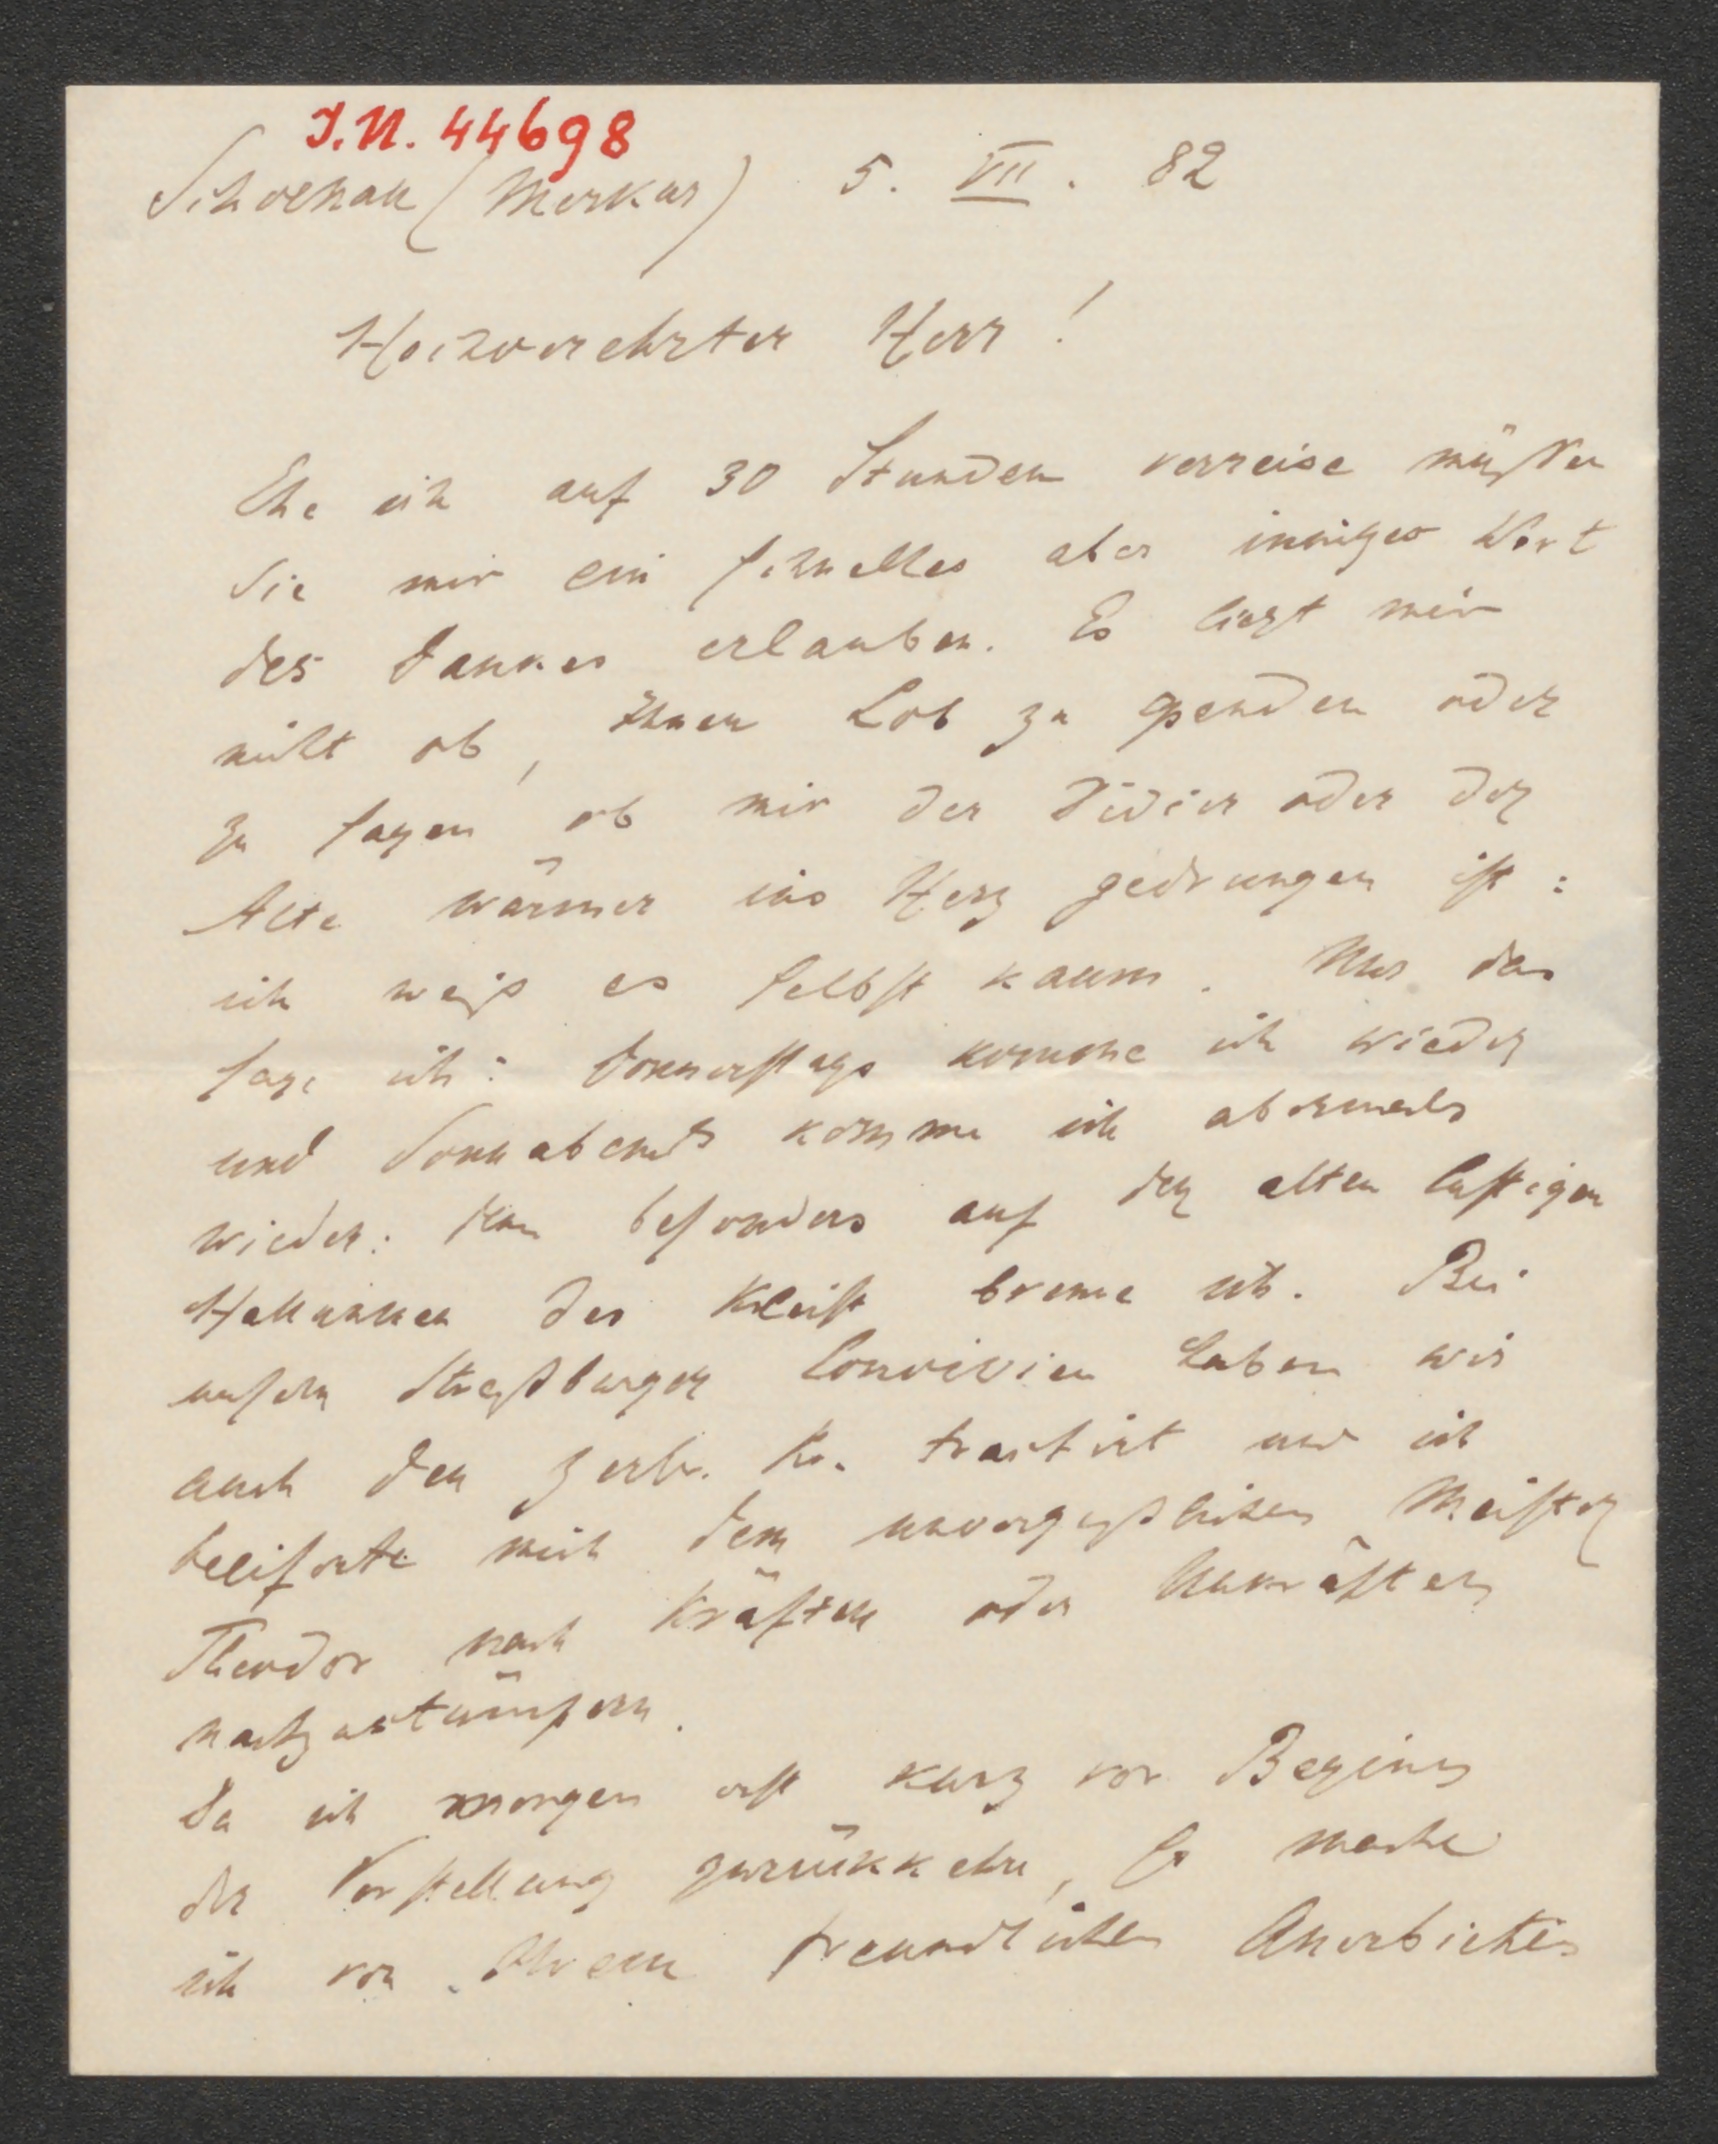 I.N. 44698
Schoenau (Merkur) 5. VII. 82
Hochverehrter Herr!
Ehe ich auf 30 Stunden verreise müssen
Sie mir ein schnelles aber inniges Wort
des Dankes erlauben. Es liegt mir
nicht ob, Ihnen Lob zu spenden oder
zu sagen ob mir der Didier oder der
Alte wärmer ins Herz gedrungen ist:
ich weiß es selbst kaum. Nur das
sage ich: Donnerstags komme ich wieder
und Sonnabends komme ich abermals
wieder: denn besonders auf den alten lustigen
des Kleist brenne ich. Bei
unsern Straßburger Convivien haben wir
auch den zerbr. Kr. tractirt und ich
beeiferte mich dem unvergeßlichen Meister
Theodor nach Kräften oder Unkräften
nachzustümpern.
Da ich morgen erst kurz vor Beginn
der Vorstellung zurückkehre, so mache
ich von Ihrem freundlichen Anerbieten